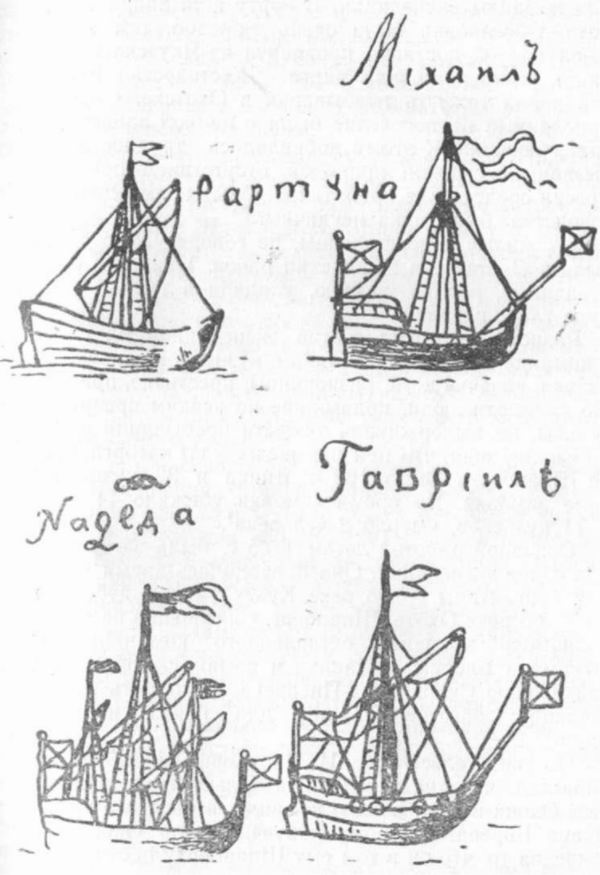 Міхаилъ
Фартуна
Гавріилъ
ж
Nадеда